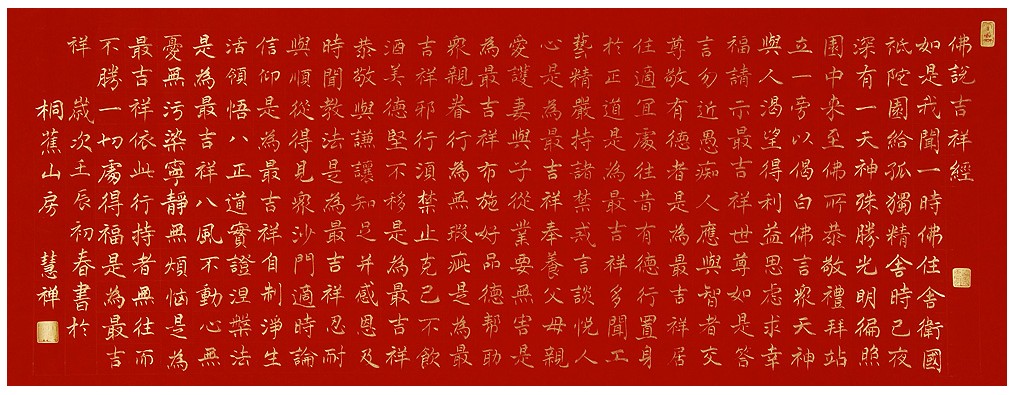 佛說吉祥經
如是我聞一時佛住舍衛國
祇陀園給孤獨精舍時已夜
深有一天神殊勝光明徧照
園中來至佛所恭敬禮拜站
立一旁以偈白佛言眾天神
與人渴望得利益思慮求幸
福請示最吉祥世尊如是答
言勿近愚痴人應與智者交
尊敬有德者是為最吉祥居
住適宜處往昔有德行置身
於正道是為最吉祥多聞工
藝精嚴持諸禁戒言談悅人
心是為最吉祥奉養父母親
愛護妻與子從業要無害是
為最吉祥布施好品德幫助
眾親眷行為無瑕疵是為最
吉祥邪行須禁止克己不飲
酒美德堅不移是為最吉祥
恭敬與謙讓知足并感恩及
時聞教法是為最吉祥忍耐
與順從得見眾沙門適時論
信仰是為最吉祥自制淨生
活領悟八正道實證涅槃法
是為最吉祥八風不動心無
憂無污染寧靜無煩惱是為
最吉祥依此行持者無往而
不勝一切處得福是為最吉
祥 歲次壬辰初春書於
桐蕉山房 慧禪